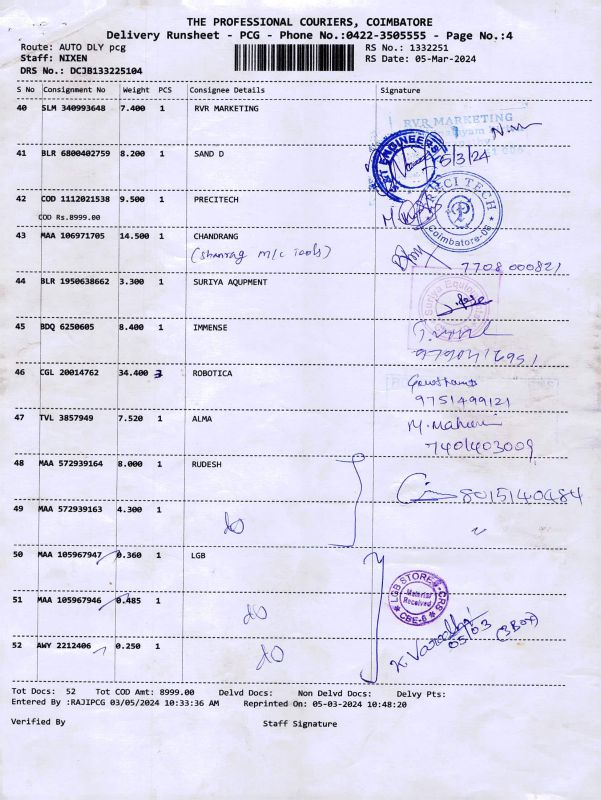 THE PROFESSIONAL COURIERS, COIMBATORE
Delivery Runsheet - PCG - Phone No.:0422-3505555 - Page No.:4
Route: AUTO DLY pcg RS No.: 1332251
Staff: NIXEN RS Date: 05-Mar-2024
DRS No.: DCJB133225104
S No Consignment No Weight PCS Consignee Details Signature
40 SLM 340993648 7.400 1 RVR MARKETING
RVR MARKETING
41 BLR 6800402759 8.200 1 SAND D
ENGINEERS
5/3/24
42 COD 1112021538 9.500 1 PRECITECH
COD Rs.8999.00
PRECI TECH
P
Coimbatore-08
43 MAA 106971705 14.500 1 CHANDRANG
(Shanrag m/c Tools)
7708000821
44 BLR 1950638662 3.300 1 SURIYA AQUPMENT
45 BDQ 6250605 8.400 1 IMMENSE
46 CGL 20014762 34.400 3 ROBOTICA
9751499121
47 TVL 3857949 7.520 1 ALMA
7401403009
48 MAA 572939164 8.000 1 RUDESH
49 MAA 572939163 4.300 1
do
50 MAA 105967947 0.360 1 LGB
LGB STORES-CRS
Material
Received
CBE-6
51 MAA 105967946 0.485 1
do
K. Varadhi
05/03
(3 BOX)
52 AWY 2212406 0.250 1
do
Tot Docs: 52 Tot COD Amt: 8999.00 Delvd Docs: Non Delvd Docs: Delvy Pts:
Entered By :RAJIPCG 03/05/2024 10:33:36 AM Reprinted On: 05-03-2024 10:48:20
Verified By Staff Signature